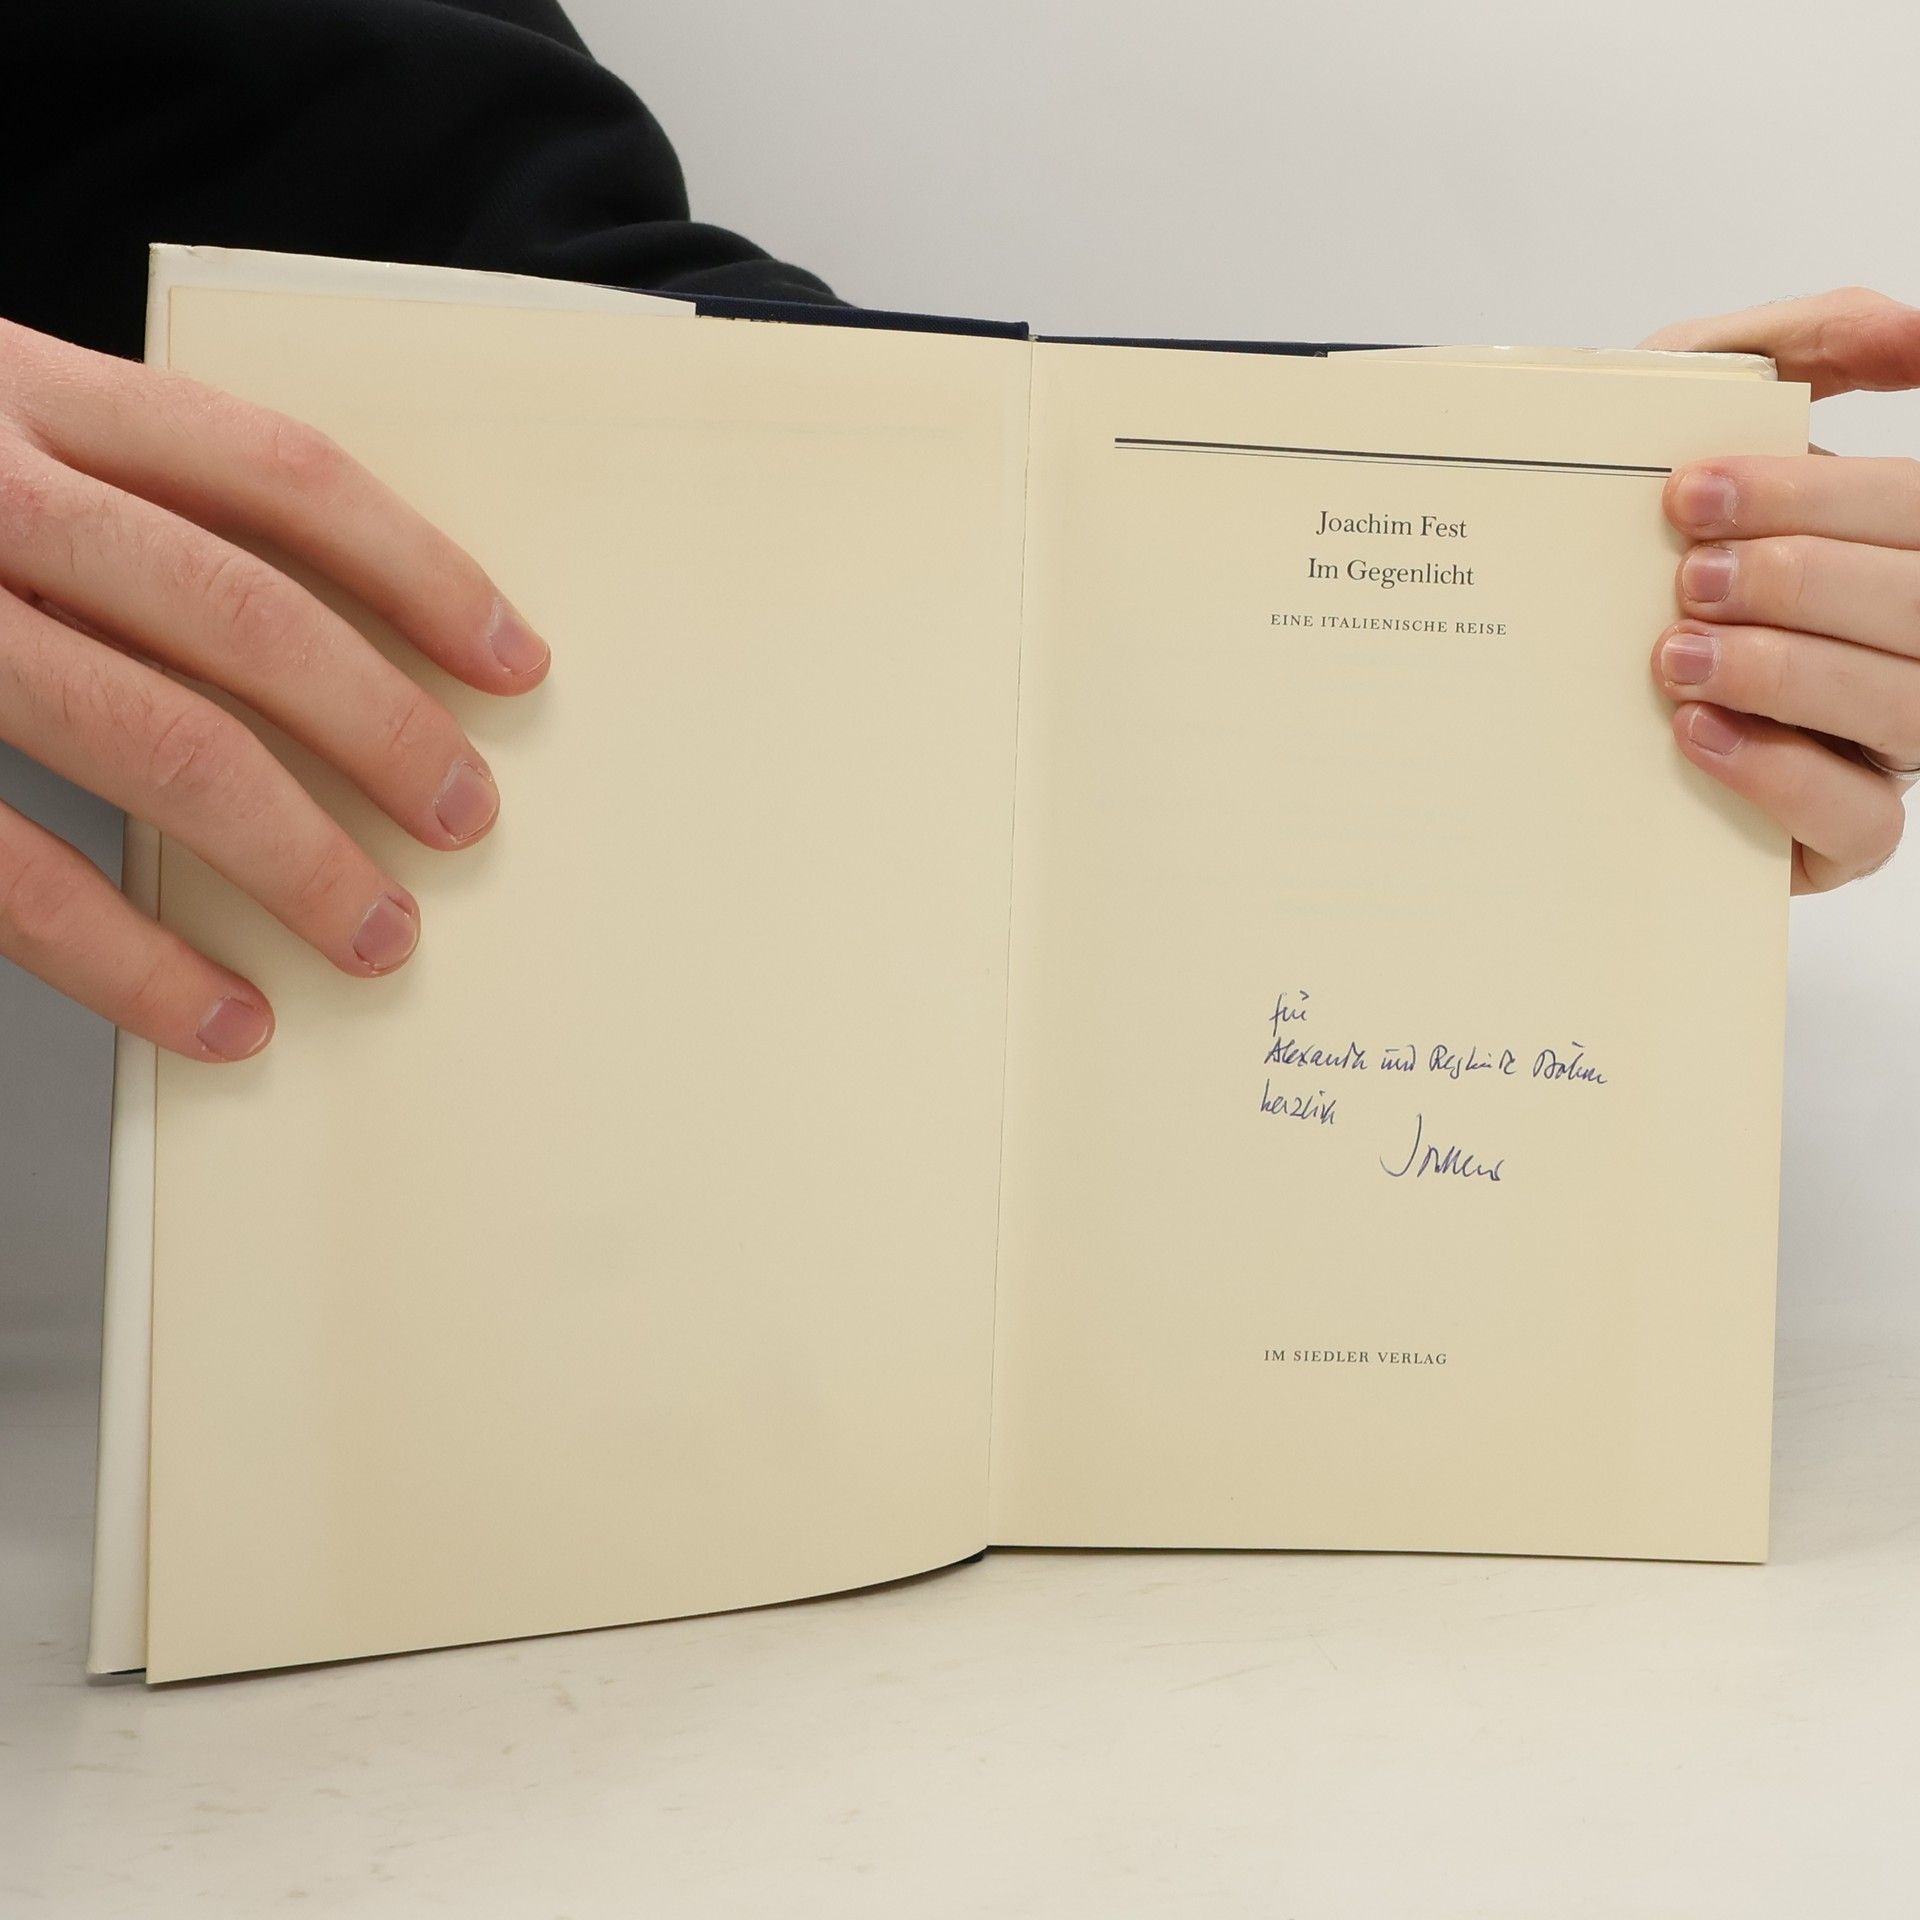 Joachim Fest
Im Gegenlicht
EINE ITALIENISCHE REISE
für
Alexander und Böhm
herzlich
IM SIEDLER VERLAG